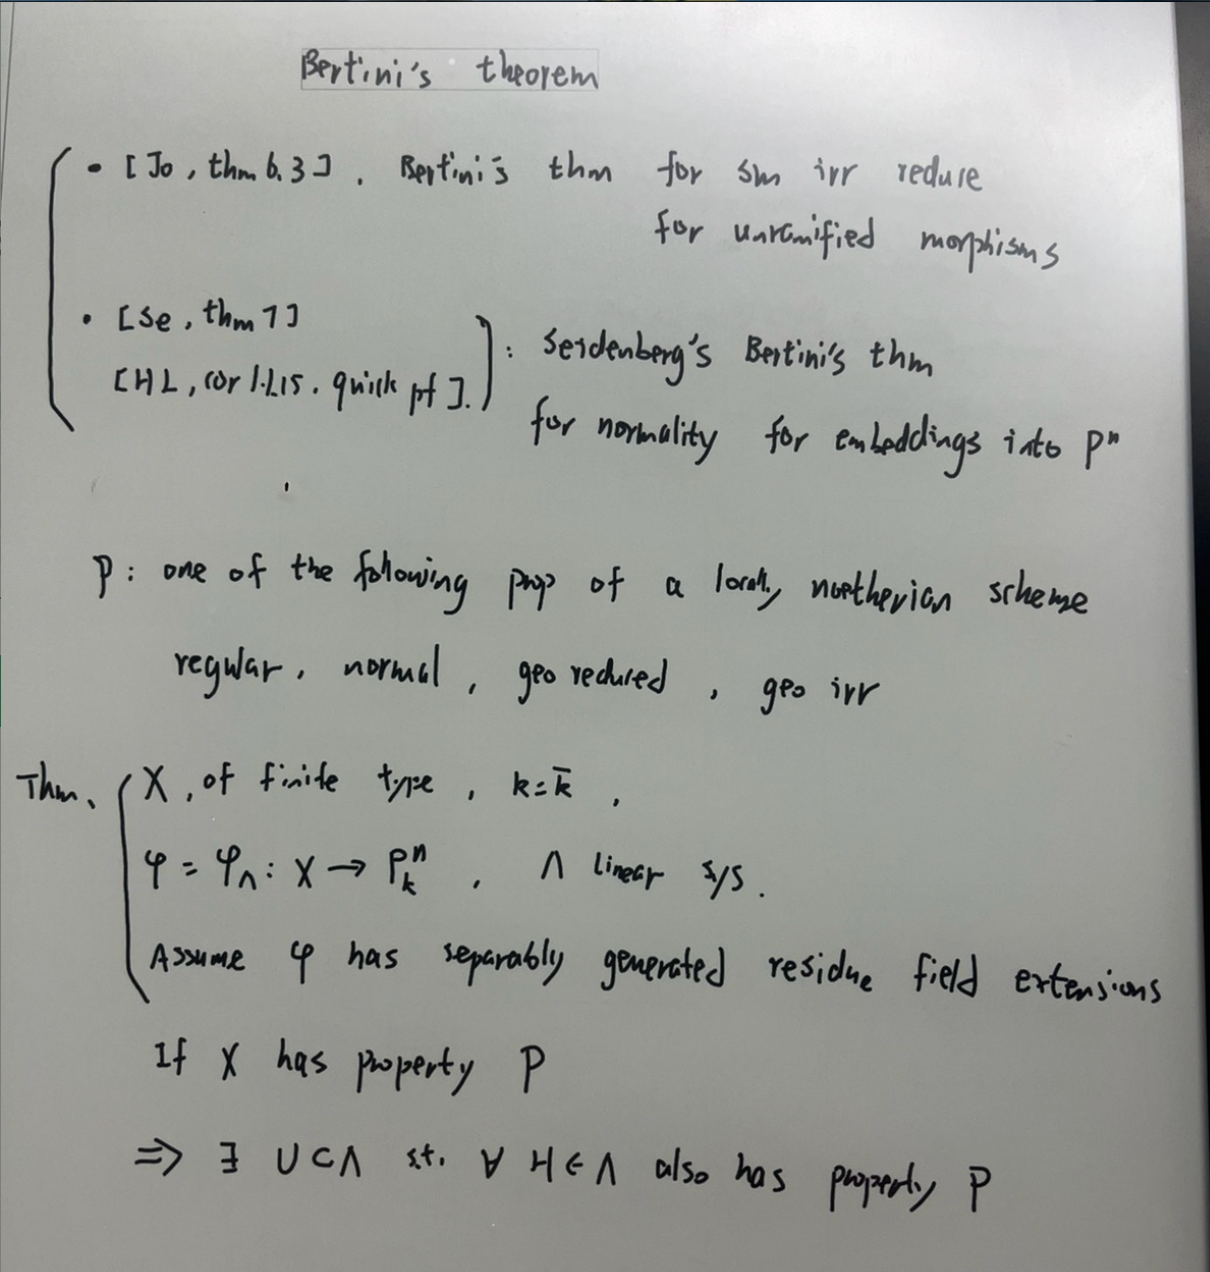 Bertini's theorem
• [Jo, thm 6.3]. Bertini's thm for sm irr reduce
for unramified morphisms
• [Se, thm 7]
[HL, cor 1.1.15. quick pf].
: Seidenberg's Bertini's thm
for normality for embeddings into Pⁿ
P: one of the following prop of a locally noetherian scheme
regular, normal, geo reduced, geo irr
Thm. X, of finite type, k=k̄,
φ = φ_Λ: X → Pₖⁿ, Λ linear s/s.
Assume φ has separably generated residue field extensions
If X has property P
⇒ ∃ U⊂Λ s.t. ∀ H∈Λ also has property P